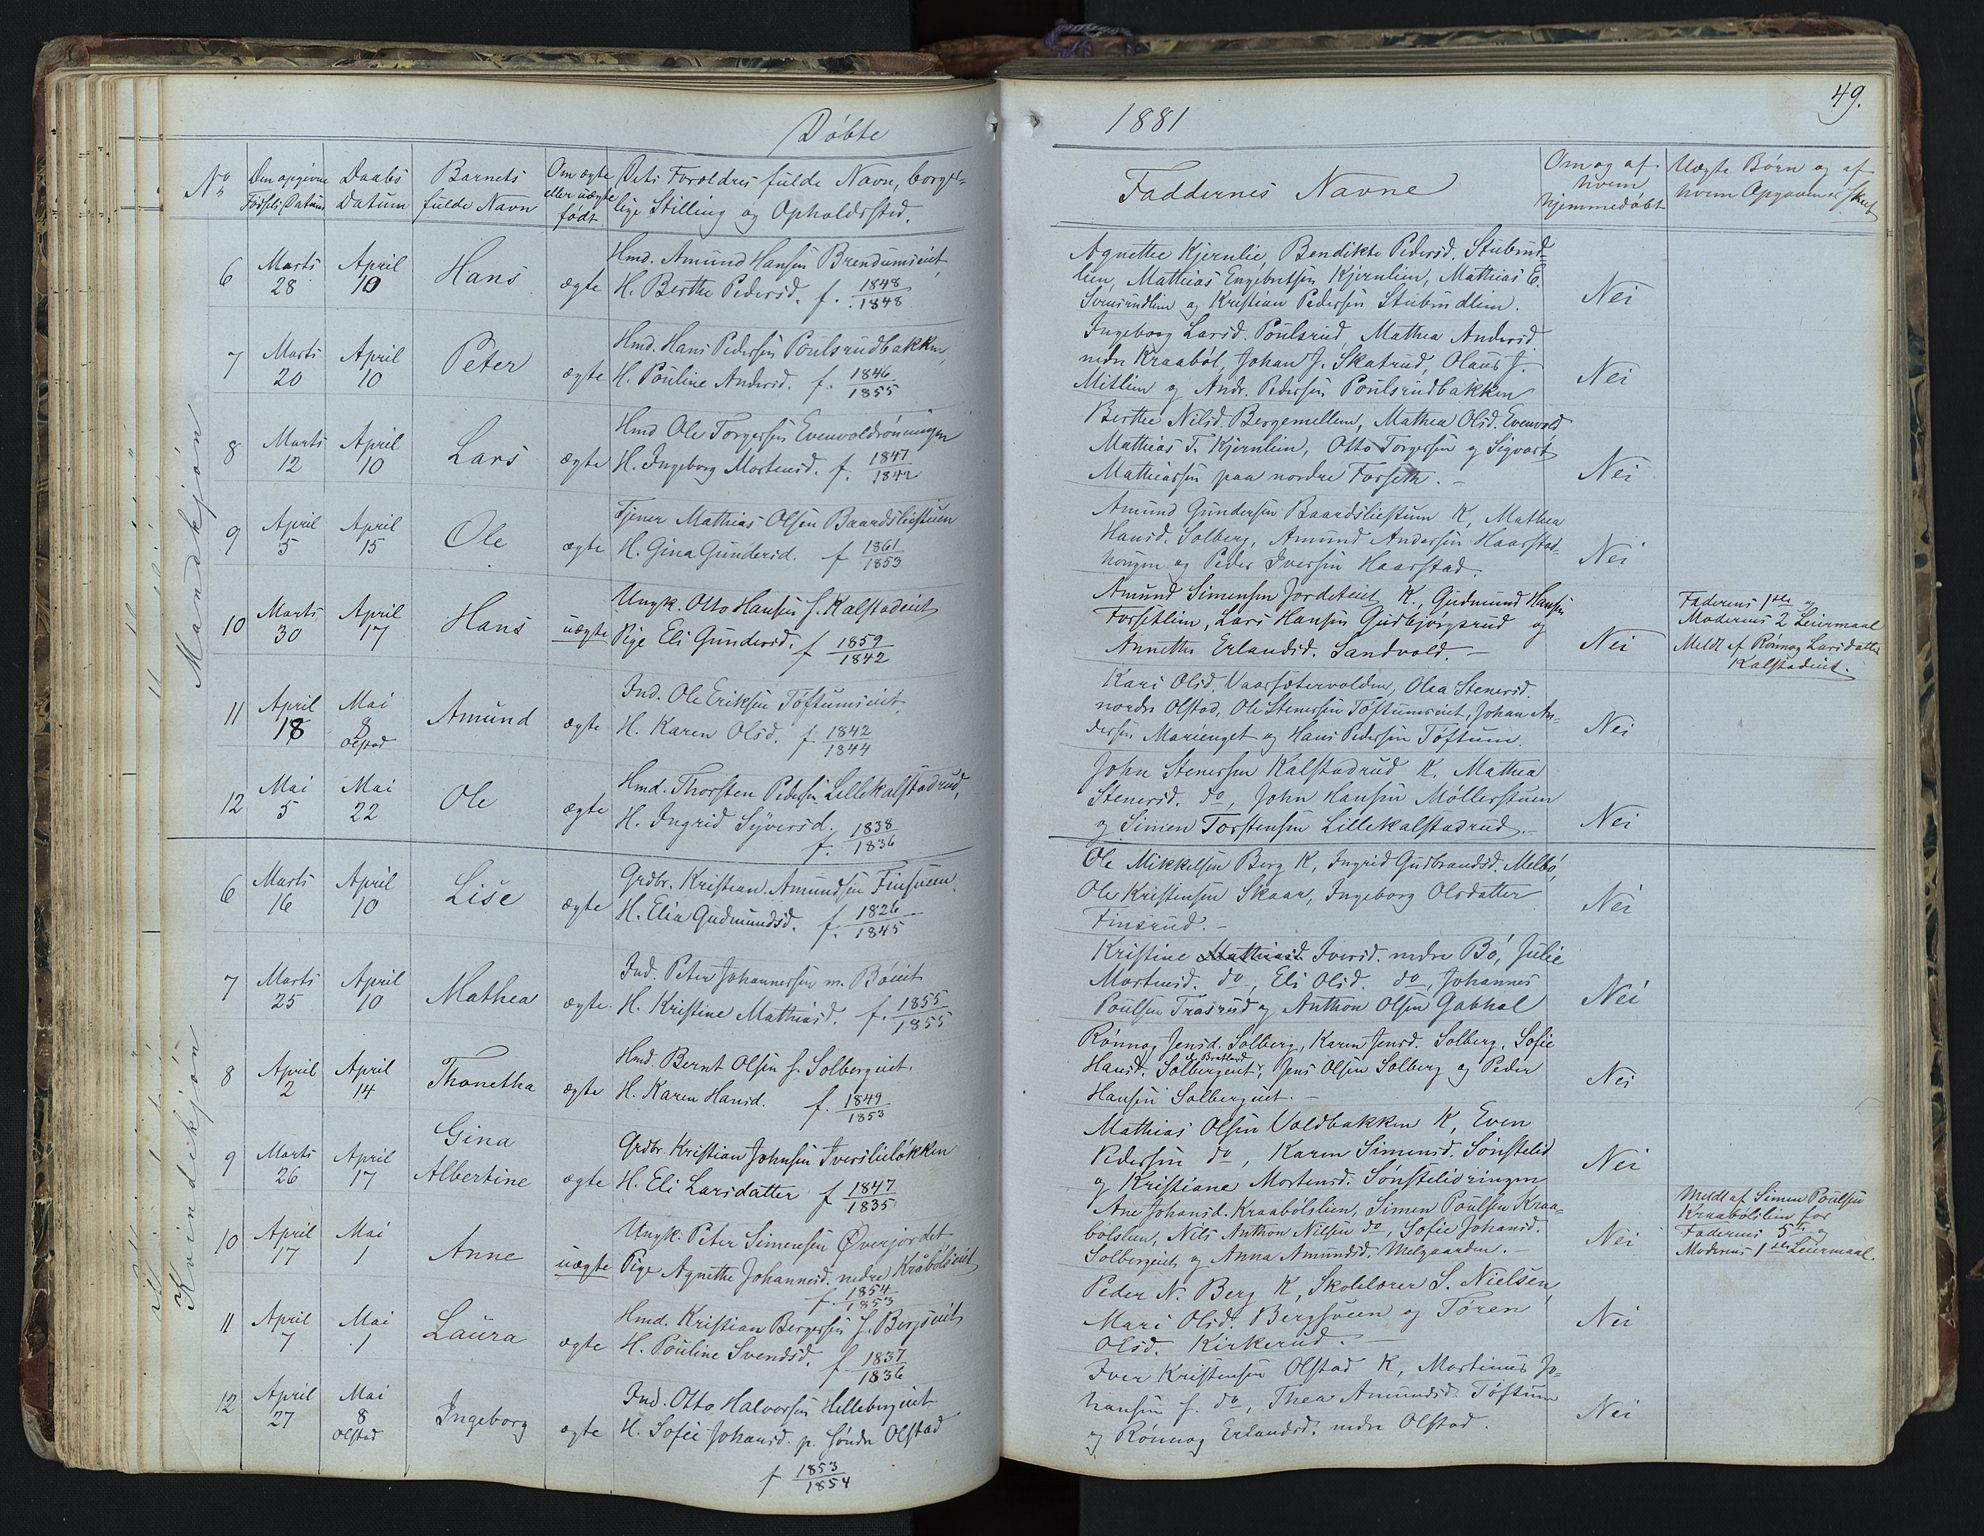 Døbte
No
Den opgivne Fødsels Datum
Daabs Datum
Barnets fulde Navn
Om ægte eller uægte født
Dets Forældres fulde Navn, borger-
lige Stilling og Opholdssted.
Mandkjøn
6 Marts 28 April 10 Hans ægte
Hmd. Amund Hansen Brendumseiet,
H. Berthe Pedersd. f. 1848/1848
7 Marts 20 April 10 Peter ægte
Hmd. Hans Pedersen Poulsrudbakken,
H. Pouline Andersd. f. 1846/1855
8 Marts 12 April 10 Lars ægte
Hmd Ole Torgersen Evenvoldrønningen
H. Ingeborg Mortensd. f. 1847/1842
9 April 5 April 15 Ole ægte
Tjener Mathias Olsen Baardsliestuen
H. Gina Gundersd. f 1861/1853
10 Marts 30 April 17 Hans uægte
Ungk. Otto Hansen f. Kalstadeiet
Pige Eli Gundersd. f 1859/1842
11 April 18 Mai 8 Olstad Amund ægte
Ind. Ole Eriksen Toftumseiet
H. Karen Olsd. f 1842/1844
12 Mai 5 Mai 22 Ole ægte
Hmd. Thorsten Pedersen Lillekalstadrud,
H. Ingrid Syversd. f. 1838/1836
Kvindekjøn
6 Marts 16 April 10 Lise ægte
Grdbr. Kristian Amundsen Finsveen
H. Elia Gudmundsd. f. 1826/1845
7 Marts 25 April 10 Mathea ægte
Ind. Peter Johannessen m. Bøeiet
H. Kristine Mathiasd. f. 1855/1855
8 April 2 April 14 Thonetha ægte
Hmd. Bernt Olsen f. Solbergeiet,
H. Karen Hansd. f. 1849/1853
9 Marts 26 April 17 Gina Albertine ægte
Grdbr. Kristian Johnsen Iverslieløkken
H. Eli Larsdatter f 1847/1835
10 April 17 Mai 1 Anne uægte
Ungk. Peter Simensen Øverjordet
Pige Agnethe Johannesd. nedre Kråbølseiet
f. 1854/1853
11 April 7 Mai 1 Laura ægte
Hmd. Kristian Bergersen f. Bergseiet
H. Pouline Svendsd. f 1837/1836
12 April 27 Mai 8 Olstad Ingeborg ægte
Ind. Otto Halvorsen Hellebergeiet
H. Sofie Johansd. p. søndre Olstad
f 1853/1854
49.
1881
Faddernes Navne
Om og af hvem hjemmedøbt
Uægte Børn og af hvem Opgaven er skeet
Agnethe Kjernlie, Bendikte Pedersd. Stubrud-
lien, Mathias Engebretsen Kjernlien, Mathias E.
og Kristian Pedersen Stubrudlien. Nei
Ingeborg Larsd. Poulsrud, Mathea Andersd
nedre Kraabøl, Johan J. Skatrud, Olaus J.
Mitlien og Andr. Pedersen Poulsrudbakken Nei
Berthe Nilsd. Bergemellem, Mathea Olsd. Evenvold
Mathias T. Kjernlien, Otto Torgersen og Sigvart
Mathiassen paa nordre Forseth. - Nei
Amund Gundersen Baardsliestuen K, Mathea
Hansd. Solberg, Amund Andersen Haarstad-
haugen og Peder Iversen Haarstad. Nei
Amund Simensen Jordeteiet K, Gudmund Hansen
Forsetlien, Lars Hansen Gudbjørgsrud og
Annethe Erlandsd. Sandvold. - Nei
Faderens 1ste og
Moderens 2 Leiermaal
Meldt af Rønnog Larsdatter
Kalstadeiet.
Kari Olsd. Vaarsætervolden, Olea Stenersd.
nordre Olstad, Ole Stenersen Toftumseiet, Johan An-
dersen Marienget og Hans Pedersen Toftum. Nei
John Stenersen Kalstadrud K. Mathea
Stenersd. do, John Hansen Møllerstuen
og Simen Torstensen Lillekalstadrud. - Nei
Ole Mikkelsen Berg K, Ingrid Gudbrandsd. Melbø,
Ole Kristensen Skaar, Ingeborg Olsdatter
Finsrud. - Nei
Kristine Mathiasd. Iversd. nedre Bø, Julie
Mortensd. do, Eli Olsd. do, Johannes
Poulsen Trasrud og Anthon Olsen Gabhol Nei
Rønnog Jensd. Solberg, Karen Jensd. Solberg, Sofie
Hansd. Solbergeiet, Jens Olsen Solberg og Peder
Hansen Solbergeiet. - Nei
Mathias Olsen Voldbakken K, Even
Pedersen do, Karen Simensd. Sønstelid
og Kristiane Mortensd. Sønstelidringen Nei
Ane Johansd. Kraabølslien, Simen Poulsen Kraa-
bølslien, Nils Anthon Nilsen do, Sofie Johansd.
Solbergeiet og Anna Amundsd. Melgaarden. - Nei
Meldt af Simen Poulsen
Kraabølslien for
Faderens 5te og
Moderens 1ste Leiermaal.
Peder N. Berg K, Skolelærer S. Nielsen,
Mari Olsd. Bergsveen og Tøren
Olsd. Kirkerud. - Nei
Iver Kristensen Olstad K, Martinus Jo-
hansen f. do, Thea Amundsd. Toftum
og Rønnog Erlandsd. nedre Olstad. Nei